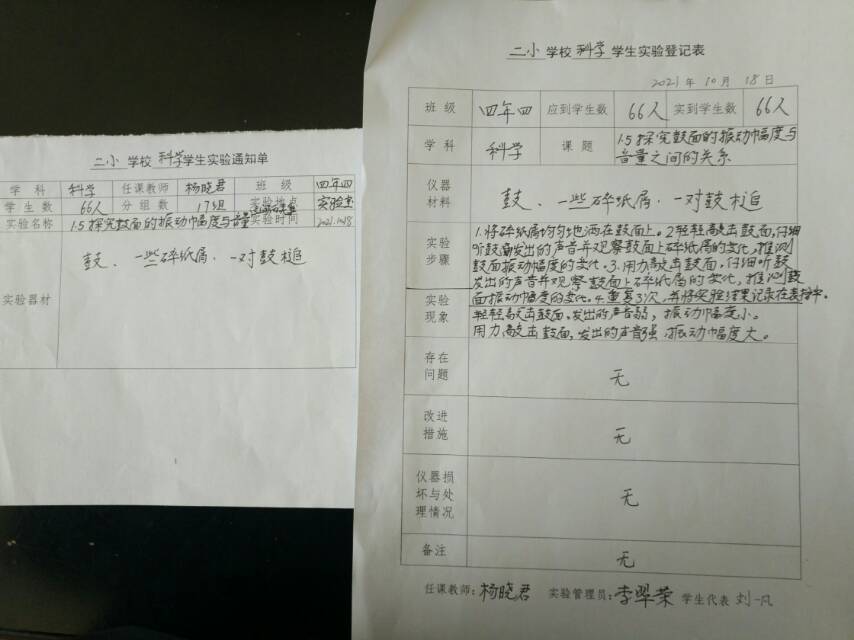 二小 学校 科学 学生实验通知单
学 科 科学 任课教师 杨晓君 班 级 四年四
学 生 数 66人 分 组 数 17组 实验地点 实验室
实验名称 1.5探究鼓面的振动幅度与音量 实验时间 2021.10.18
鼓、一些碎纸屑、一对鼓槌
实验器材
二小 学校 科学 学生实验登记表
2021 年 10 月 18 日
班 级 四年四 应到学生数 66人 实到学生数 66人
学 科 科学 课 题 1.5探究鼓面的振动幅度与
音量之间的关系
仪器
材料 鼓、一些碎纸屑、一对鼓槌
实验
步骤
1.将碎纸屑均匀地洒在鼓面上。2.轻轻敲击鼓面,仔细
听鼓面发出的声音并观察鼓面上碎纸屑的变化,推测
鼓面振动幅度的变化。3.用力敲击鼓面,仔细听鼓
发出的声音并观察鼓面上碎纸屑的变化,推测鼓
面振动幅度的变化。4.重复3次,并将实验结果记录在表格中。
实验
现象
轻轻敲击鼓面,发出的声音弱,振动幅度小。
用力敲击鼓面,发出的声音强,振动幅度大。
存在
问题 无
改进
措施 无
仪器损
坏与处
理情况 无
备注 无
任课教师:杨晓君 实验管理员:李翠荣 学生代表 刘一凡